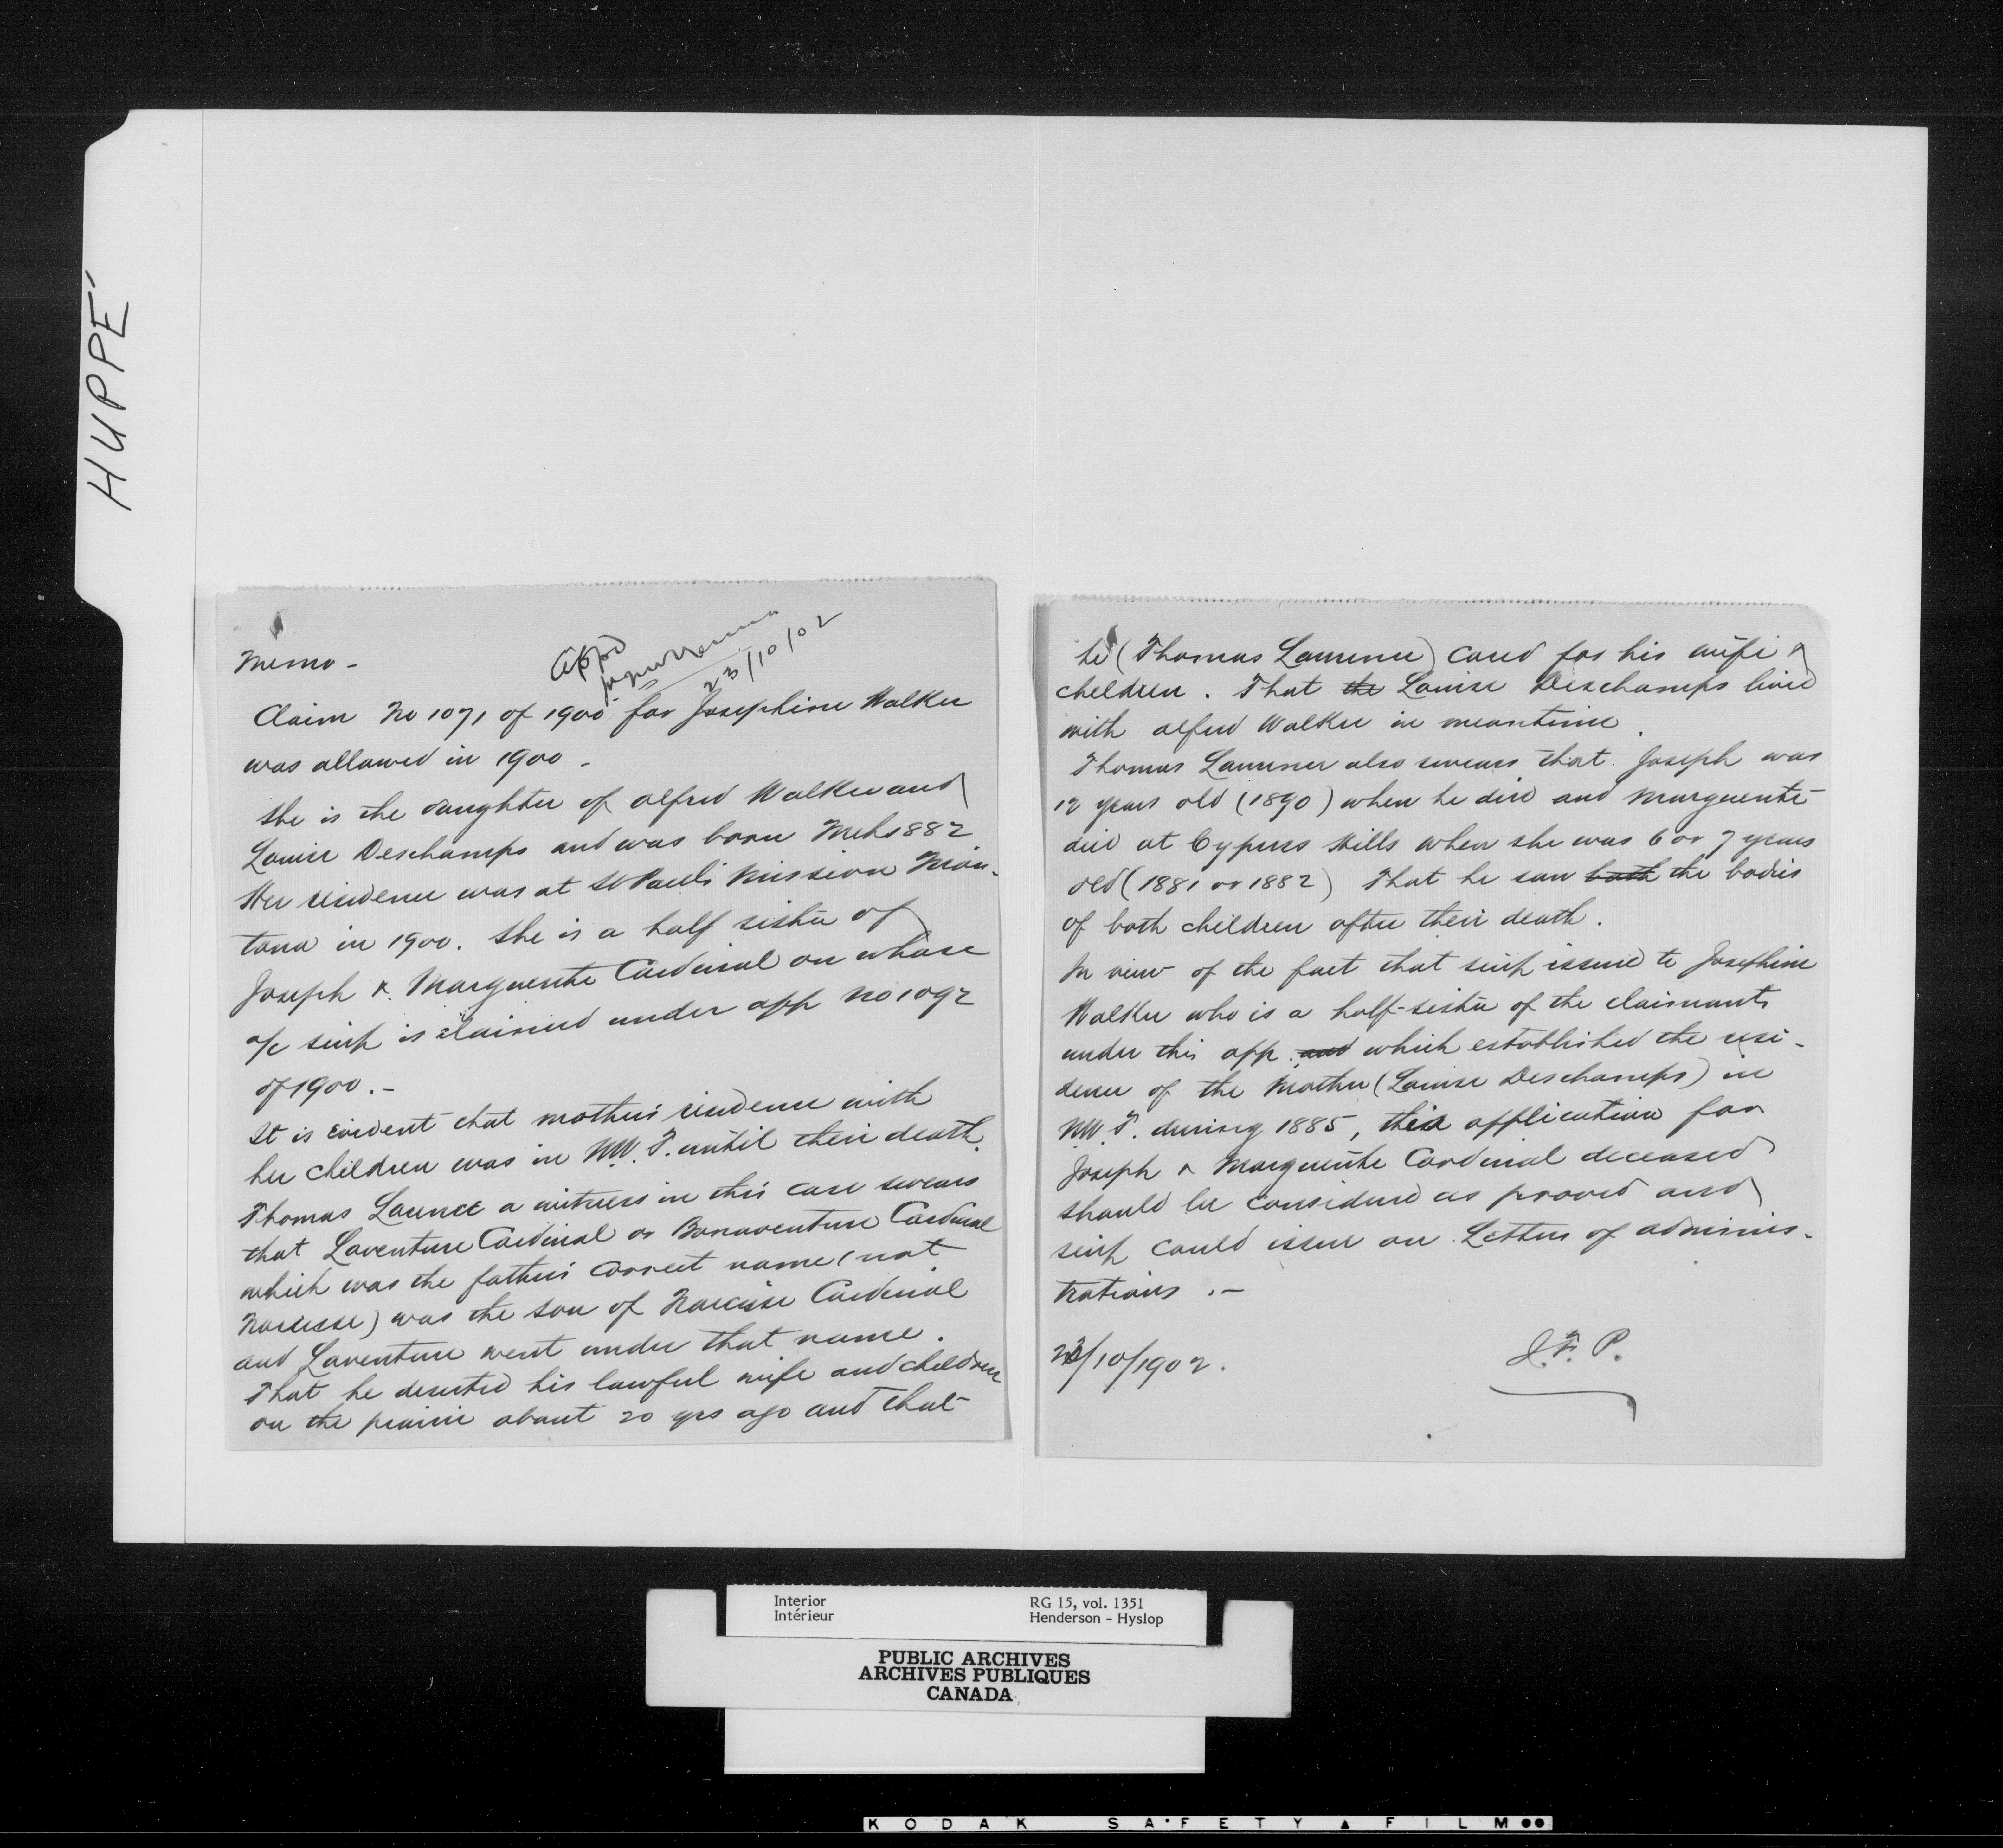 HUPPÉ
Memo -
Appd
23/10/02
Claim No 1071 of 1900 for Josephine Walker
was allowed in 1900 -
She is the daughter of Alfred Walker and
Louise Deschamps and was born Mch 1882
Her residence was at St Paul's Mission Mon-
tana in 1900. She is a half sister of
Joseph & Marguerite Cardinal on whose
a/c scrip is claimed under app No 1092
of 1900. -
It is evident that mother's residence with
her children was in N.W.T. until their death.
Thomas Laurence a witness in this case swears
that Laventure Cardinal or Bonaventure Cardinal
which was the father's correct name (not
Narcisse) was the son of Narcisse Cardinal
and Laventure went under that name.
That he deserted his lawful wife and children
on the prairie about 20 yrs ago and that
he (Thomas Laurence) cared for his wife &
children. That the Louise Deschamps lived
with Alfred Walker in meantime.
Thomas Laurence also swears that Joseph was
12 years old (1890) when he died and Marguerite
died at Cypress Hills when she was 6 or 7 years
old (1881 or 1882) That he saw both the bodies
of both children after their death.
In view of the fact that scrip issued to Josephine
Walker who is a half-sister of the claimants
under this app. and which established the resi-
dence of the Mother (Louise Deschamps) in
N.W.T. during 1885, this application for
Joseph & Marguerite Cardinal deceased
should be considered as proved and
scrip could issue on Letters of adminis-
trations. -
/10/1902.
J.F.P.
Interior RG 15, vol. 1351
Intérieur Henderson - Hyslop
PUBLIC ARCHIVES
ARCHIVES PUBLIQUES
CANADA
KODAK SAFETY FILM